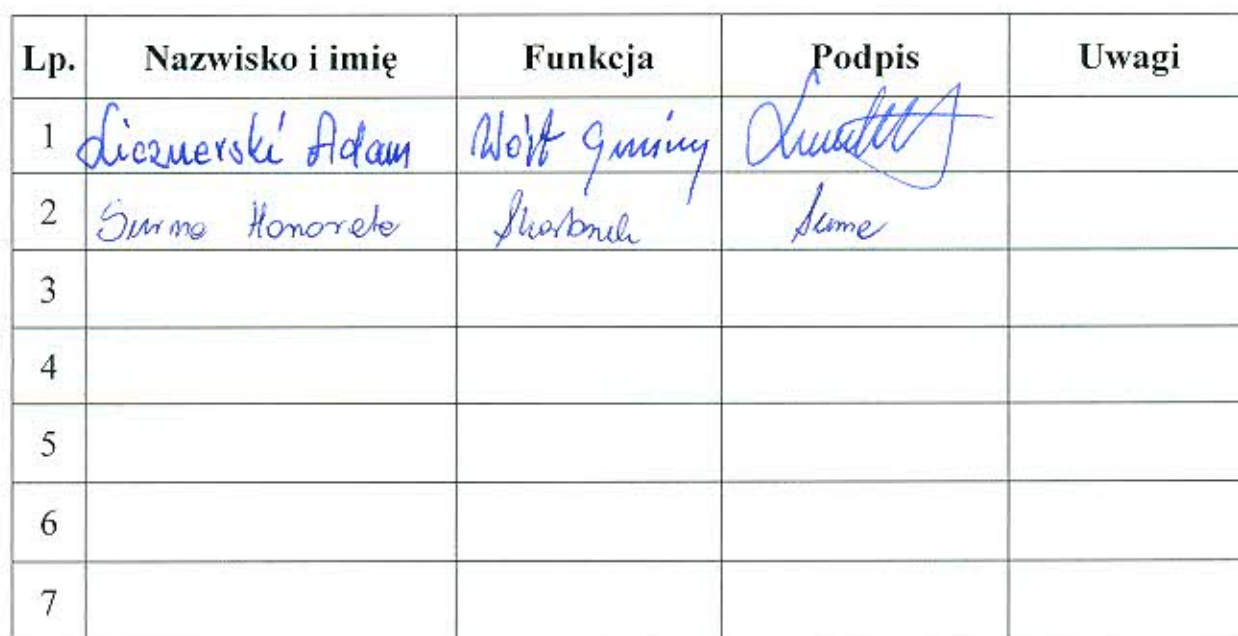 Lp. Nazwisko i imię Funkcja Podpis Uwagi
1 Licznerski Adam Wójt Gminy
2 Surma Honorata Skarbnik
3
4
5
6
7